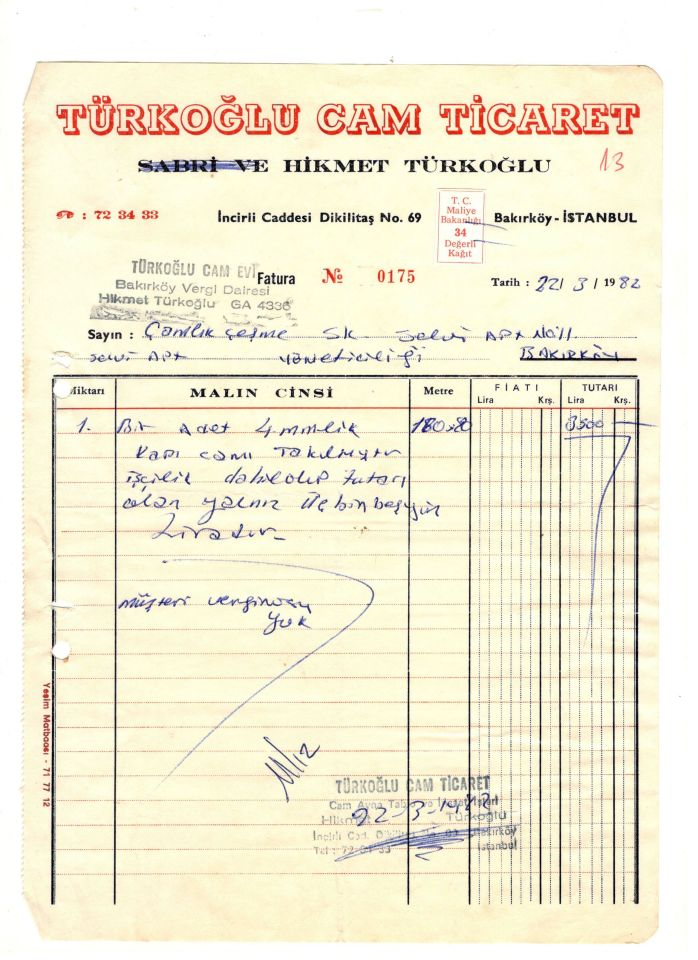 TÜRKOĞLU CAM TİCARET
SABRİ VE HİKMET TÜRKOĞLU
13
: 72 34 33
İncirli Caddesi Dikilitaş No. 69
T. C.
Maliye
Bakanlığı
34
Değerli
Kağıt
Bakırköy - İSTANBUL
TÜRKOĞLU CAM EVİ
Bakırköy Vergi Dairesi
Hikmet Türkoğlu GA 4336
Fatura № 0175
Tarih : 22/ 3 / 1982
Sayın : Çamlık çeşme SK Selvi APT No: 11
Selvi APT yöneticiliği BAKIRKÖY
Miktarı MALIN CİNSİ Metre FİATI TUTARI
Lira Krş. Lira Krş.
1. Bir adet 4 mmlik 180x80 3500
Kapı camı Takılmıştır
işçilik dahil olup tutarı
olan yalnız Üçbinbeşyüz
Liradır
müşteri
Yok
Yeşim Matbaası - 71 77 12
TÜRKOĞLU CAM TİCARET
Cam Ayna
22-3-1982
Hikmet Türkoğlu
İncirli Cad. Dikilitaş No. 69 Bakırköy
Tel : 72 İstanbul